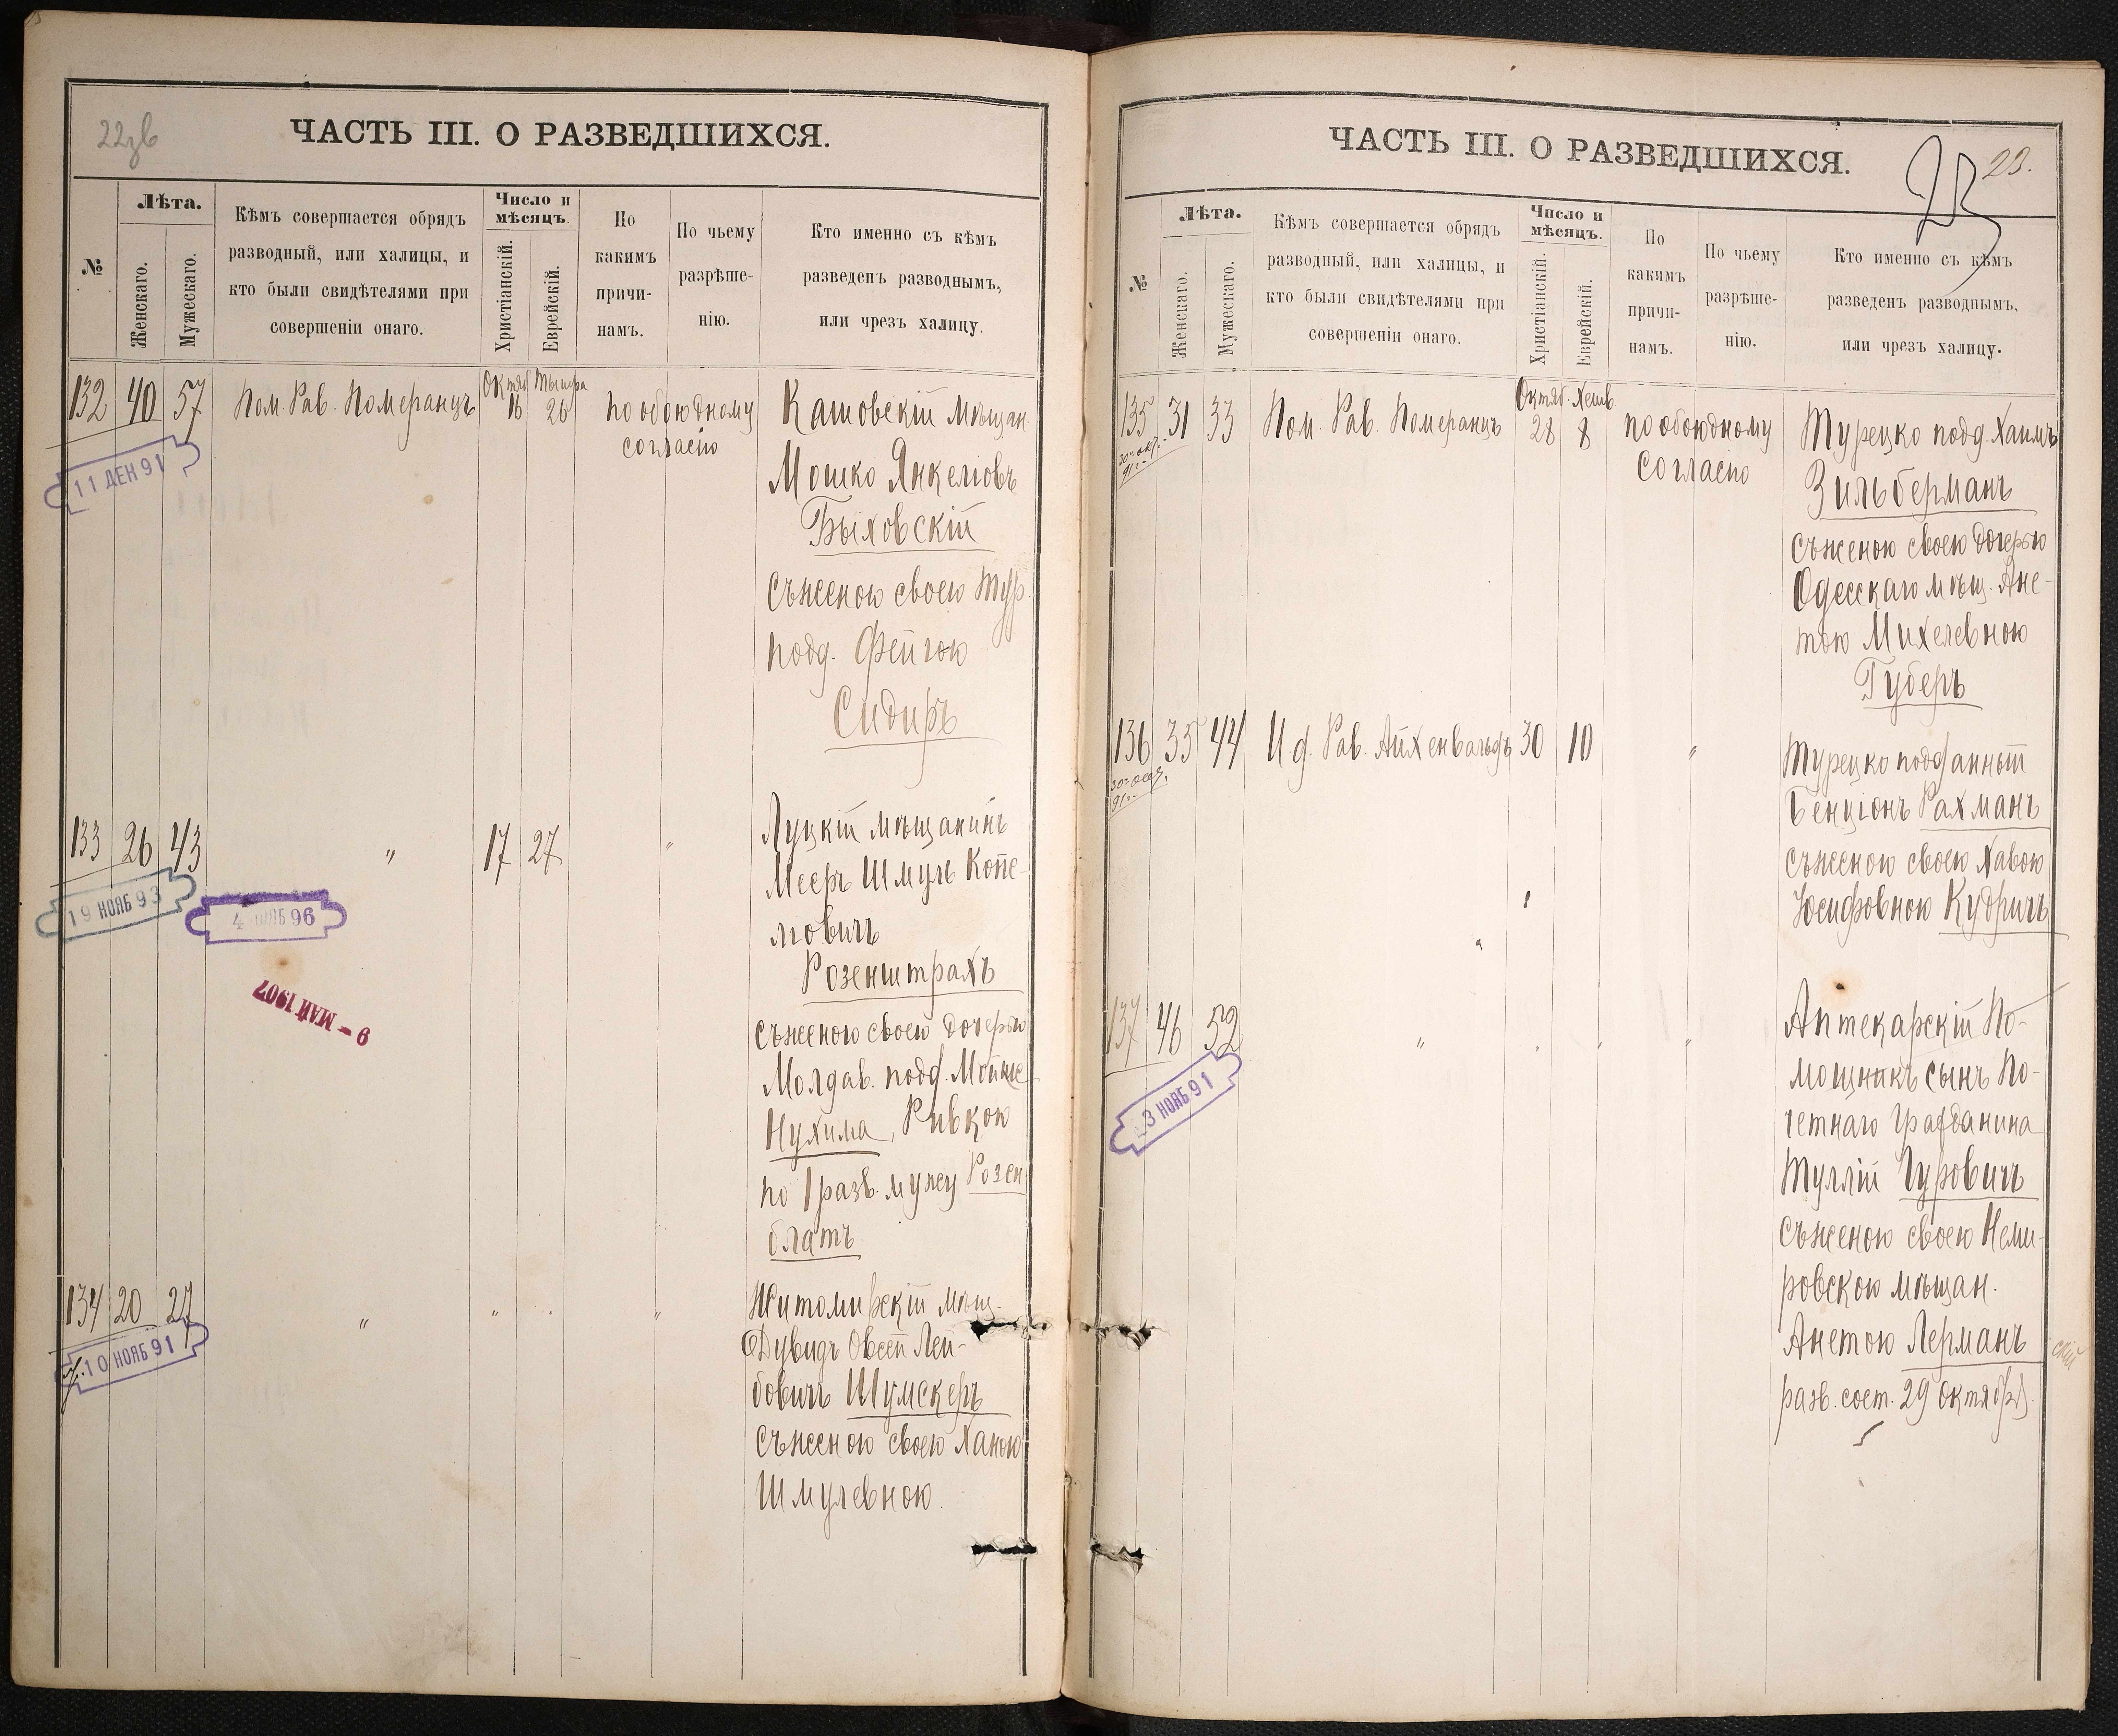 22зв
ЧАСТЬ III. О РАЗВЕДШИХСЯ.
№
Лѣта.
Женскаго.
Мужескаго.
Кѣмъ совершается обрядъ
разводный, или халицы, и
кто были свидѣтелями при
совершеніи онаго.
Число и
мѣсяцъ.
Христіанскій.
Еврейскій.
По
какимъ
причи-
намъ.
По чьему
разрѣше-
нію.
Кто именно съ кѣмъ
разведенъ разводнымъ,
или чрезъ халицу.
132 40 57 Пом. Рав. Померанцъ Октяб 16 Тышра 26 по обоюдному
согласію
11 ДЕН 91
Мошко Янкеліовъ
Быховскій
съ женою своею Тур.
подд. Фейгою
Сидиръ
133 26 43 " 17 27 "
19 НОЯБ 93
4 НОЯБ 96
9 – МАЙ 1907
Луцкій мѣщанинъ
Мееръ Шмуль Копе-
ліовичъ
Розенштрахъ
съ женою своею дочерью
Молдав. подд. Мойше
Нухима, Ривкою
по 1 разв. мужу Розен
блатъ
134 20 27 " " . "
10 НОЯБ 91
Житомирскій мѣщ.
Дувидъ Овсей Лей-
бовичъ Шумскеръ
съ женою своею Ханою
Шмулевною.
ЧАСТЬ III. О РАЗВЕДШИХСЯ.
23
23.
№
Лѣта.
Женскаго.
Мужескаго.
Кѣмъ совершается обрядъ
разводный, или халицы, и
кто были свидѣтелями при
совершеніи онаго.
Число и
мѣсяцъ.
Христіанскій.
Еврейскій.
По
какимъ
причи-
намъ.
По чьему
разрѣше-
нію.
Кто именно съ кѣмъ
разведенъ разводнымъ,
или чрезъ халицу.
135 31 33 Пом. Рав. Померанцъ Октяб. 28 Хешв. 8 по обоюдному
согласію
Турецко подд. Хаимъ
Зильберманъ
съ женою своею дочерью
Одесскаго мѣщ. Ане-
тою Михелевною
Губеръ
136 35 44 И. д. Рав. Айхенвальдъ 30 10 "
Турецко подданный
Бенціонъ Рахманъ
съ женою своею Хавою
Іосифовною Кудричъ
137 46 52 " . " "
3 НОЯБ 91
Аптекарскій По-
мощникъ сынъ По-
четнаго Гражданина
Туллій Гуровичъ
съ женою своею Неми-
ровскою мѣщан.
Анетою Лерманъ
разв. сост. 29 Октября.